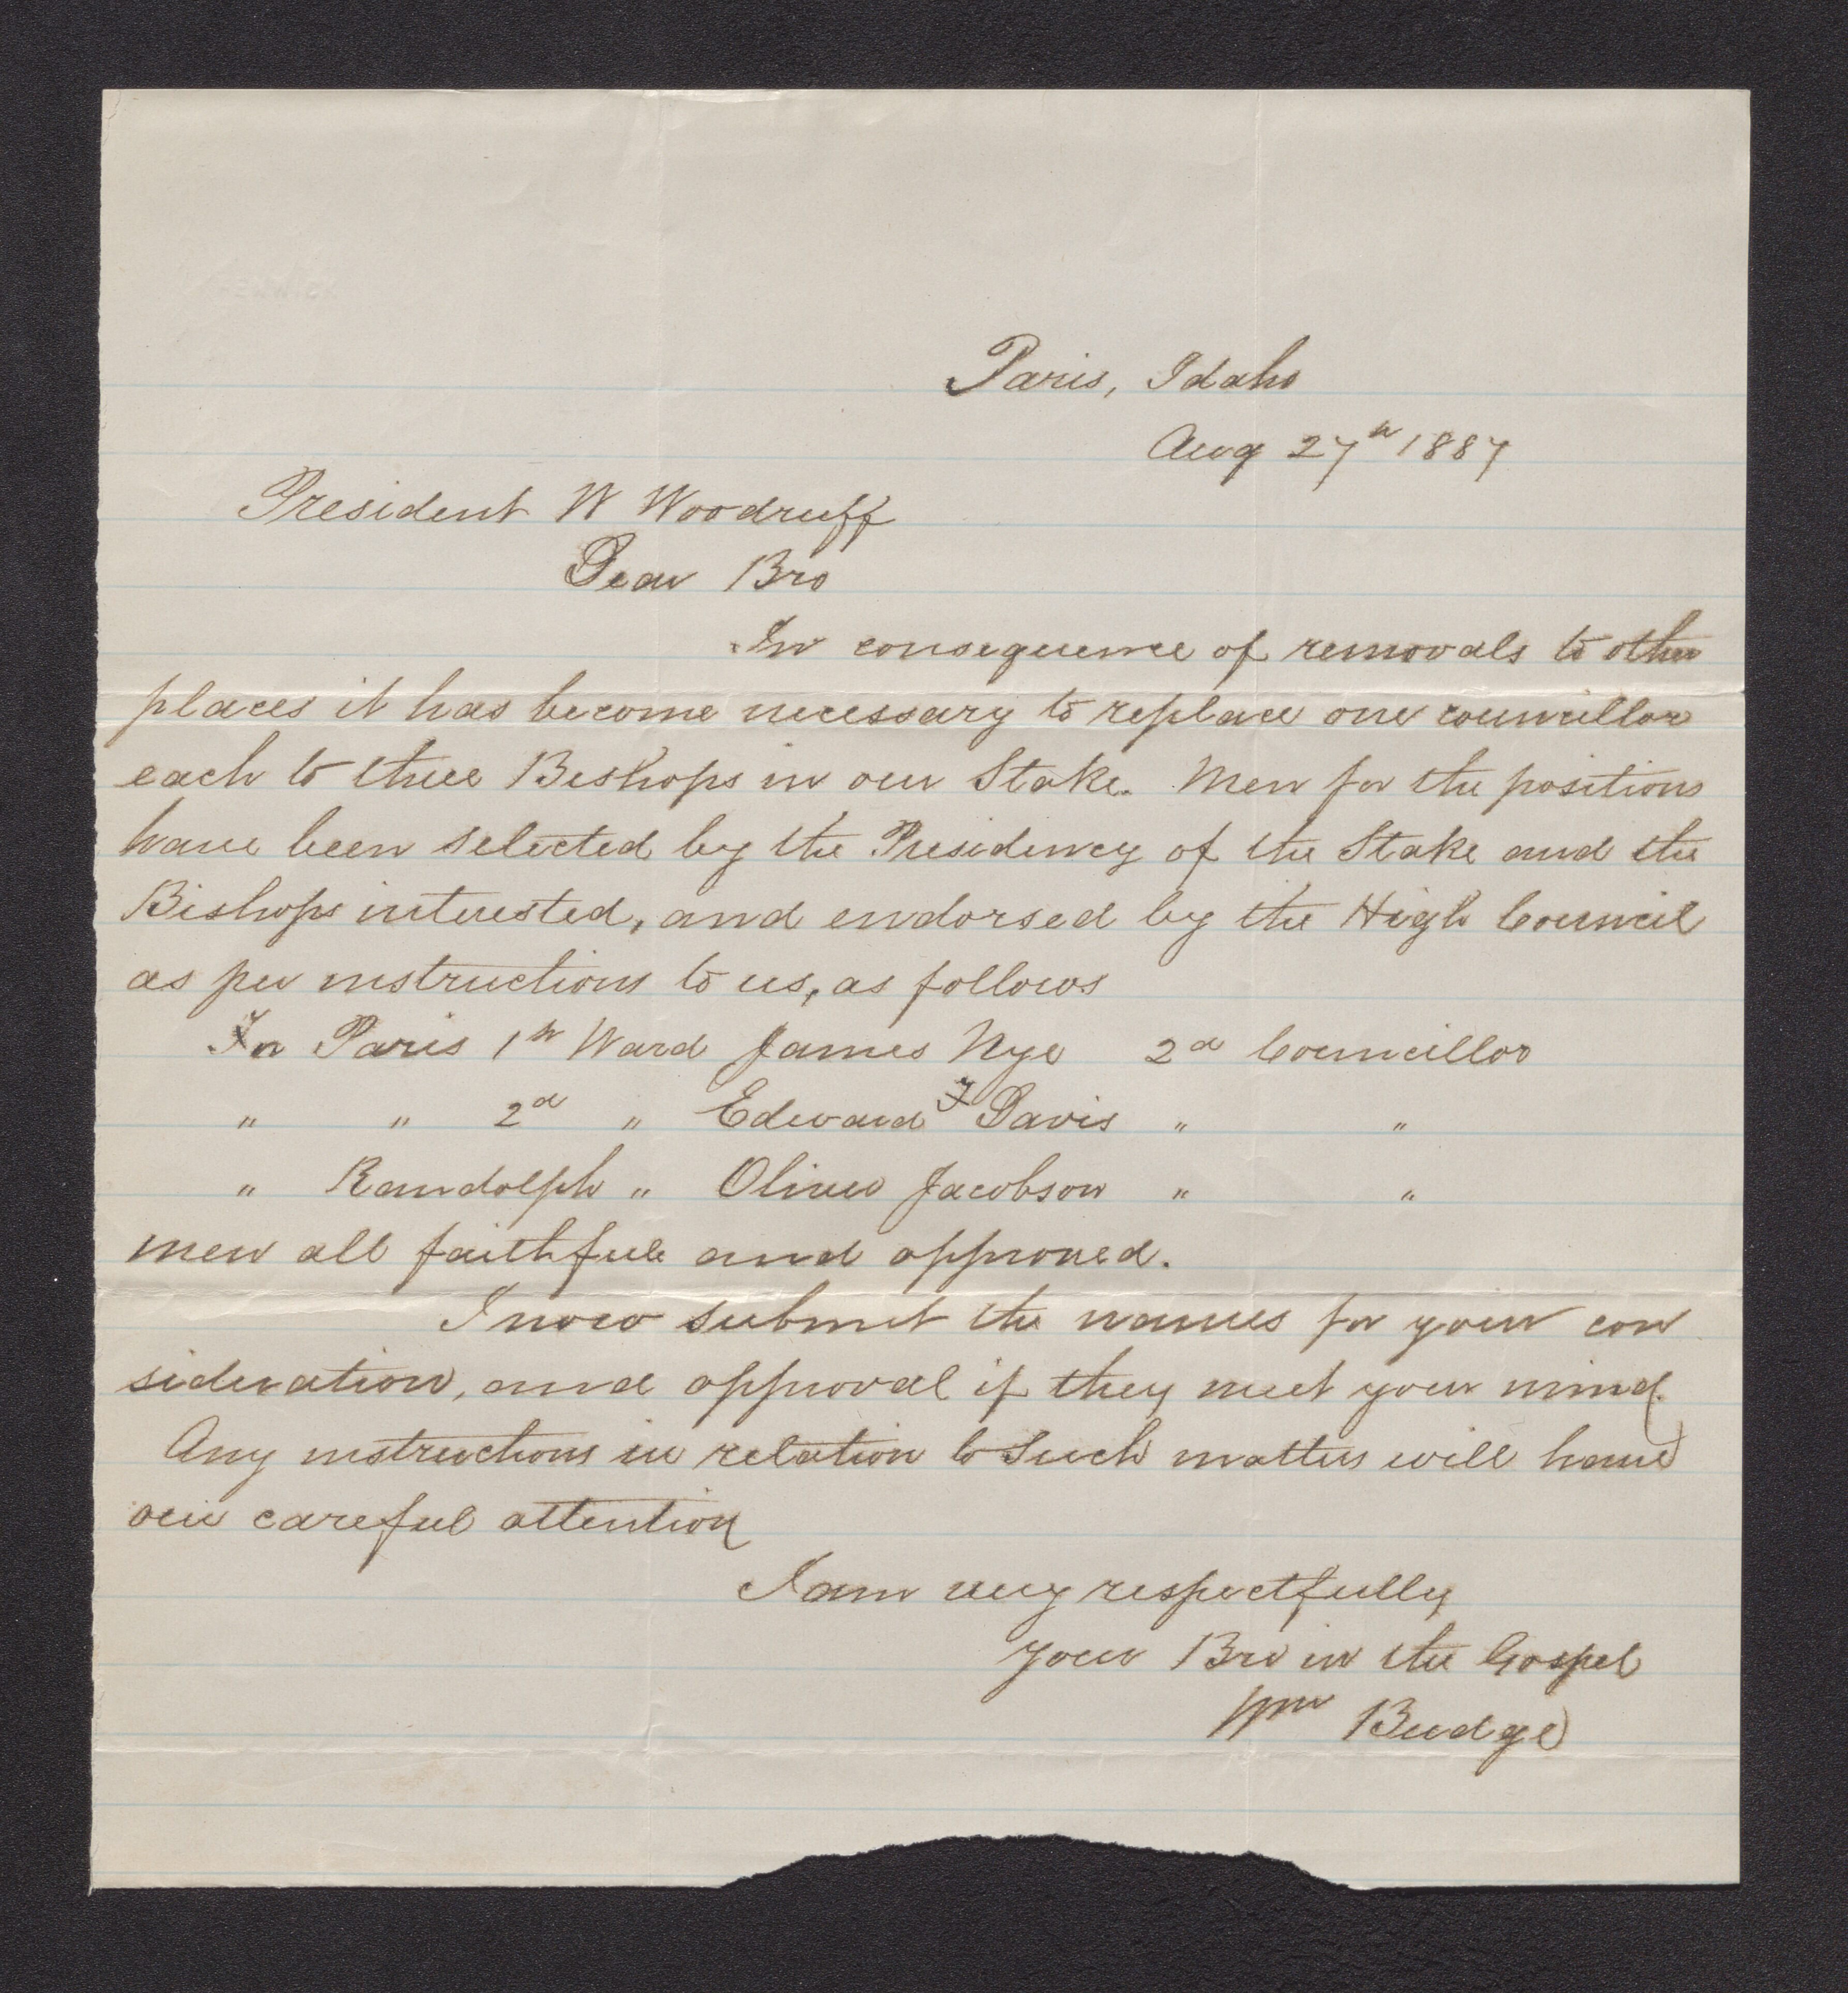 Paris, Idaho
Aug 27th 1887
President W Woodruff
Dear Bro
In consequence of removals to other
places it has become necessary to replace one councillor
each to three Bishops in our Stake. Men for the positions
have been selected by the Presidency of the Stake and the
Bishops interested, and endorsed by the High Council
as per instructions to us, as follows
In Paris 1st Ward James Nye 2d Councillor
" " 2d " Edward F Davis " "
" Randolph " Oliver Jacobson " "
men all faithful and approved.
I now submit the names for your con
sideration, and approval if they meet your mind.
Any instructions in relation to such matters will have
our careful attention
I am very respectfully
your Bro in the Gospel
Wm Budge